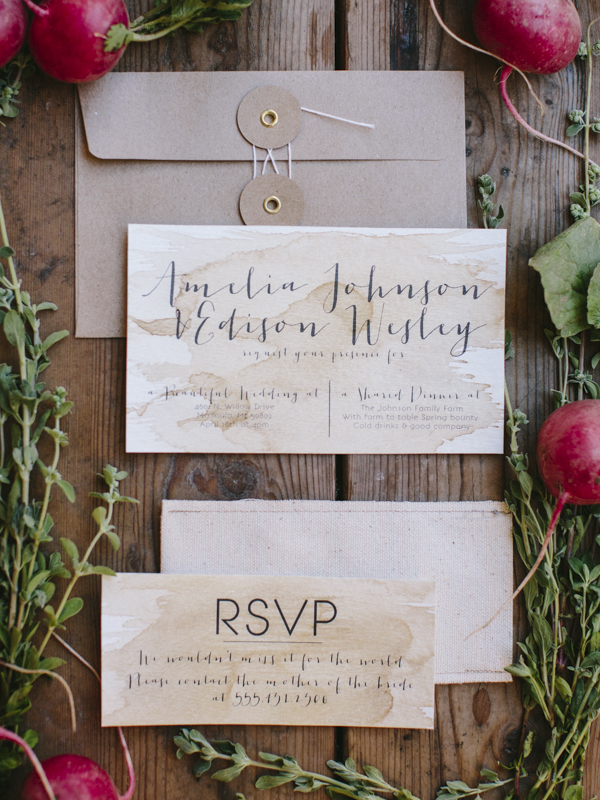 Amelia Johnson
& Edison Wesley
request your presence for
a Beautiful Wedding at
N. Widow Drive
April 18th at 4pm
a Shared Dinner at
The Johnson Family Farm
With farm to table Spring bounty
Cold drinks & good company
RSVP
We wouldn't miss it for the world
Please contact the mother of the bride
at 555.151.2506